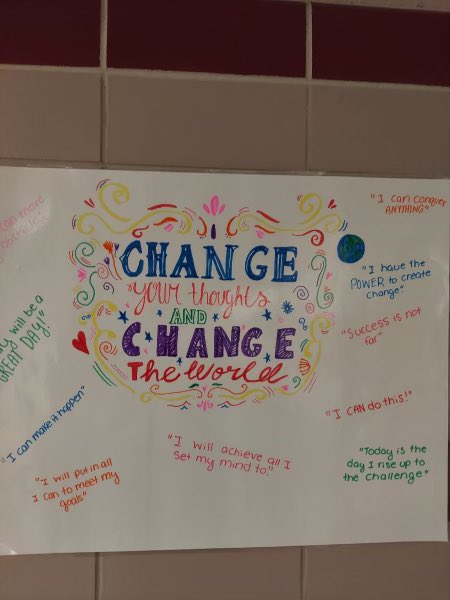 CHANGE
your thoughts
AND
CHANGE
The World
"I can conquer
ANYTHING"
"I have the
POWER to create
change"
"Success is not
far"
"I CAN do this!"
"Today is the
day I rise up to
the challenge"
"I will achieve all I
set my mind to."
"I will put in all
I can to meet my
goals"
"I can make it happen"
will be a
GREAT DAY!"
can move